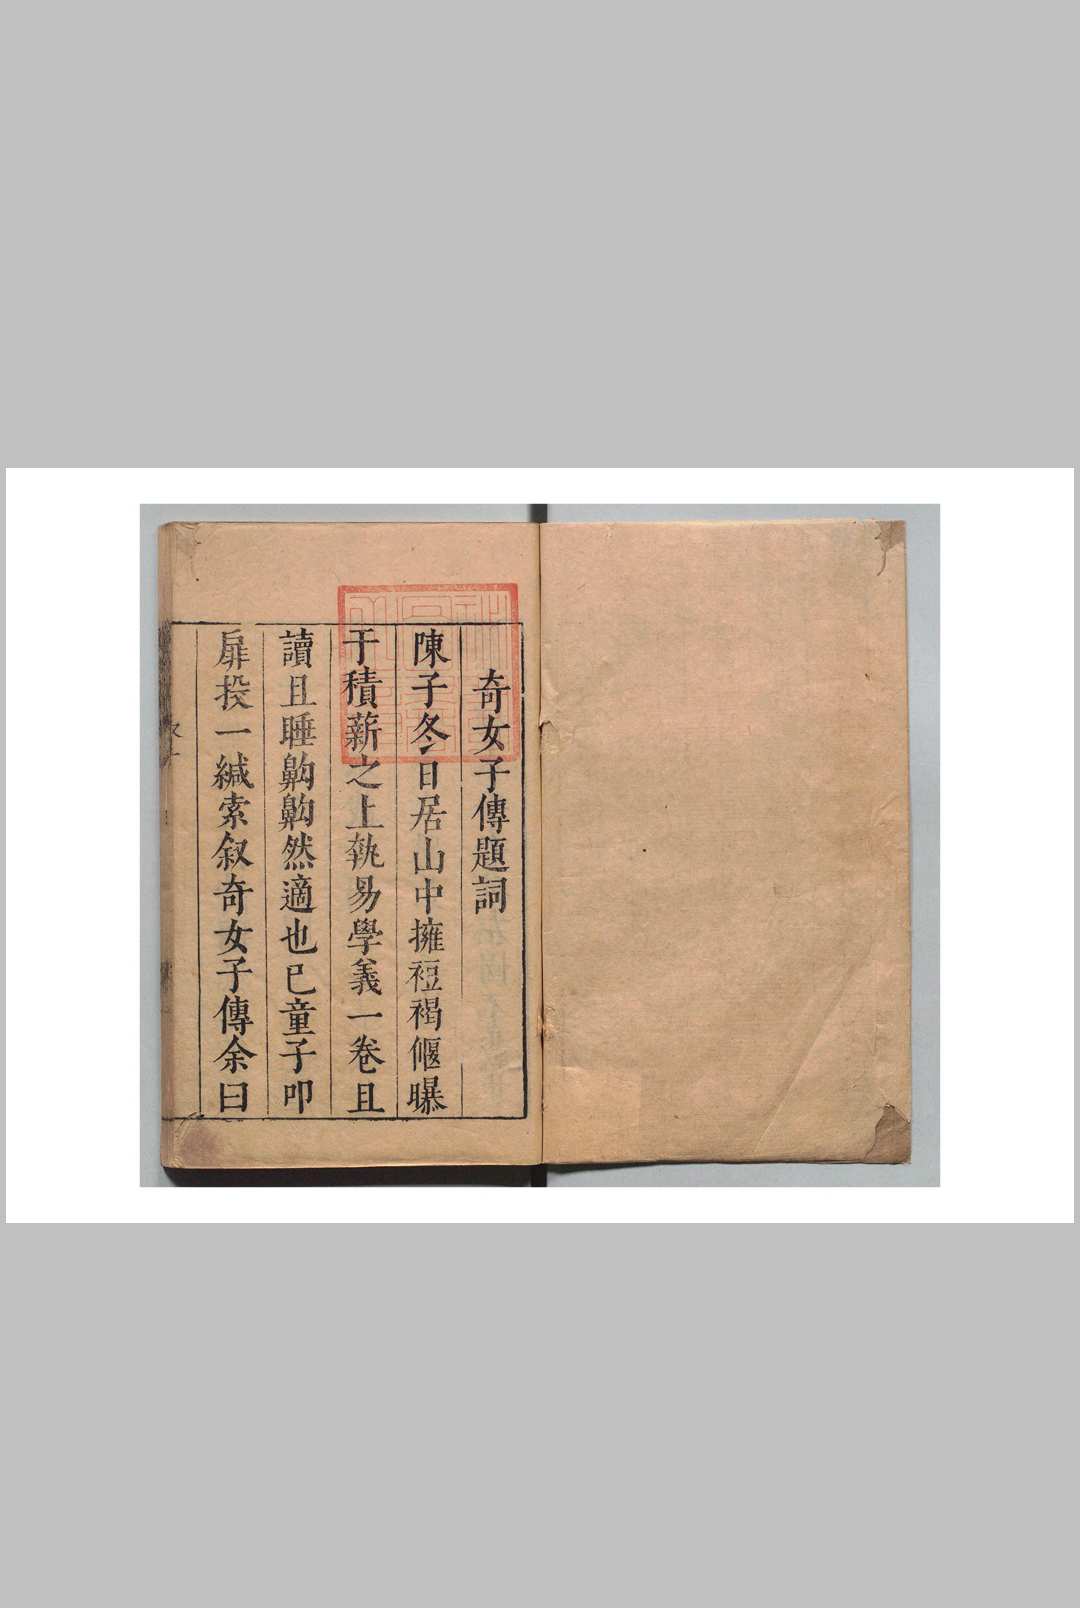 奇女子傳題詞
陳子冬日居山中擁裋褐偃曝
于積薪之上執易學義一卷且
讀且睡齁齁然適也已童子叩
扉投一緘索叙奇女子傳余曰